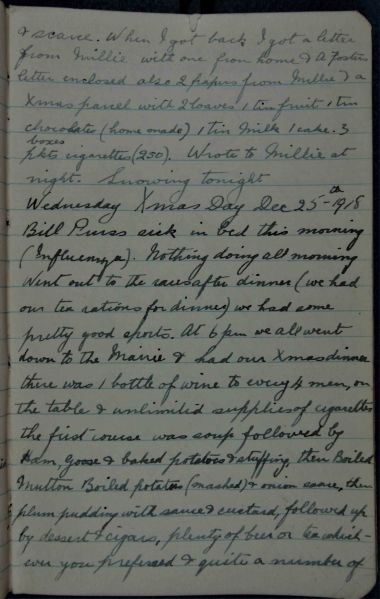 & scarce. When I got back I got a letter
from Millie with one from home & A Fosters
letter enclosed also 2 papers from Millie & a
Xmas parcel with 2 loaves 1 tin fruit 1 tin
chocolates (home made) 1 tin Milk 1 cake. 3
boxes
pkts cigarettes (230). Wrote to Millie at
night. Snowing tonight
Wednesday Xmas Day Dec 25th 1918
Bill Purss sick in bed this morning
(Influenza). Nothing doing all morning
Went out to the races after dinner (we had
our tea rations for dinner) we had some
pretty good sports. At 6 pm we all went
down to the Mairie & had our Xmas dinner
there was 1 bottle of wine to every 4 men, on
the table & unlimitid supplies of cigarettes
the first course was soup followed by
Ham, Goose & baked potatoes & stuffing, then Boiled
Mutton Boiled potatoes (mashed) & onion sauce, then
plum pudding with sauce & custard, followed up
by dessert & cigars, plenty of beer or tea which-
ever you prefered & quite a number of